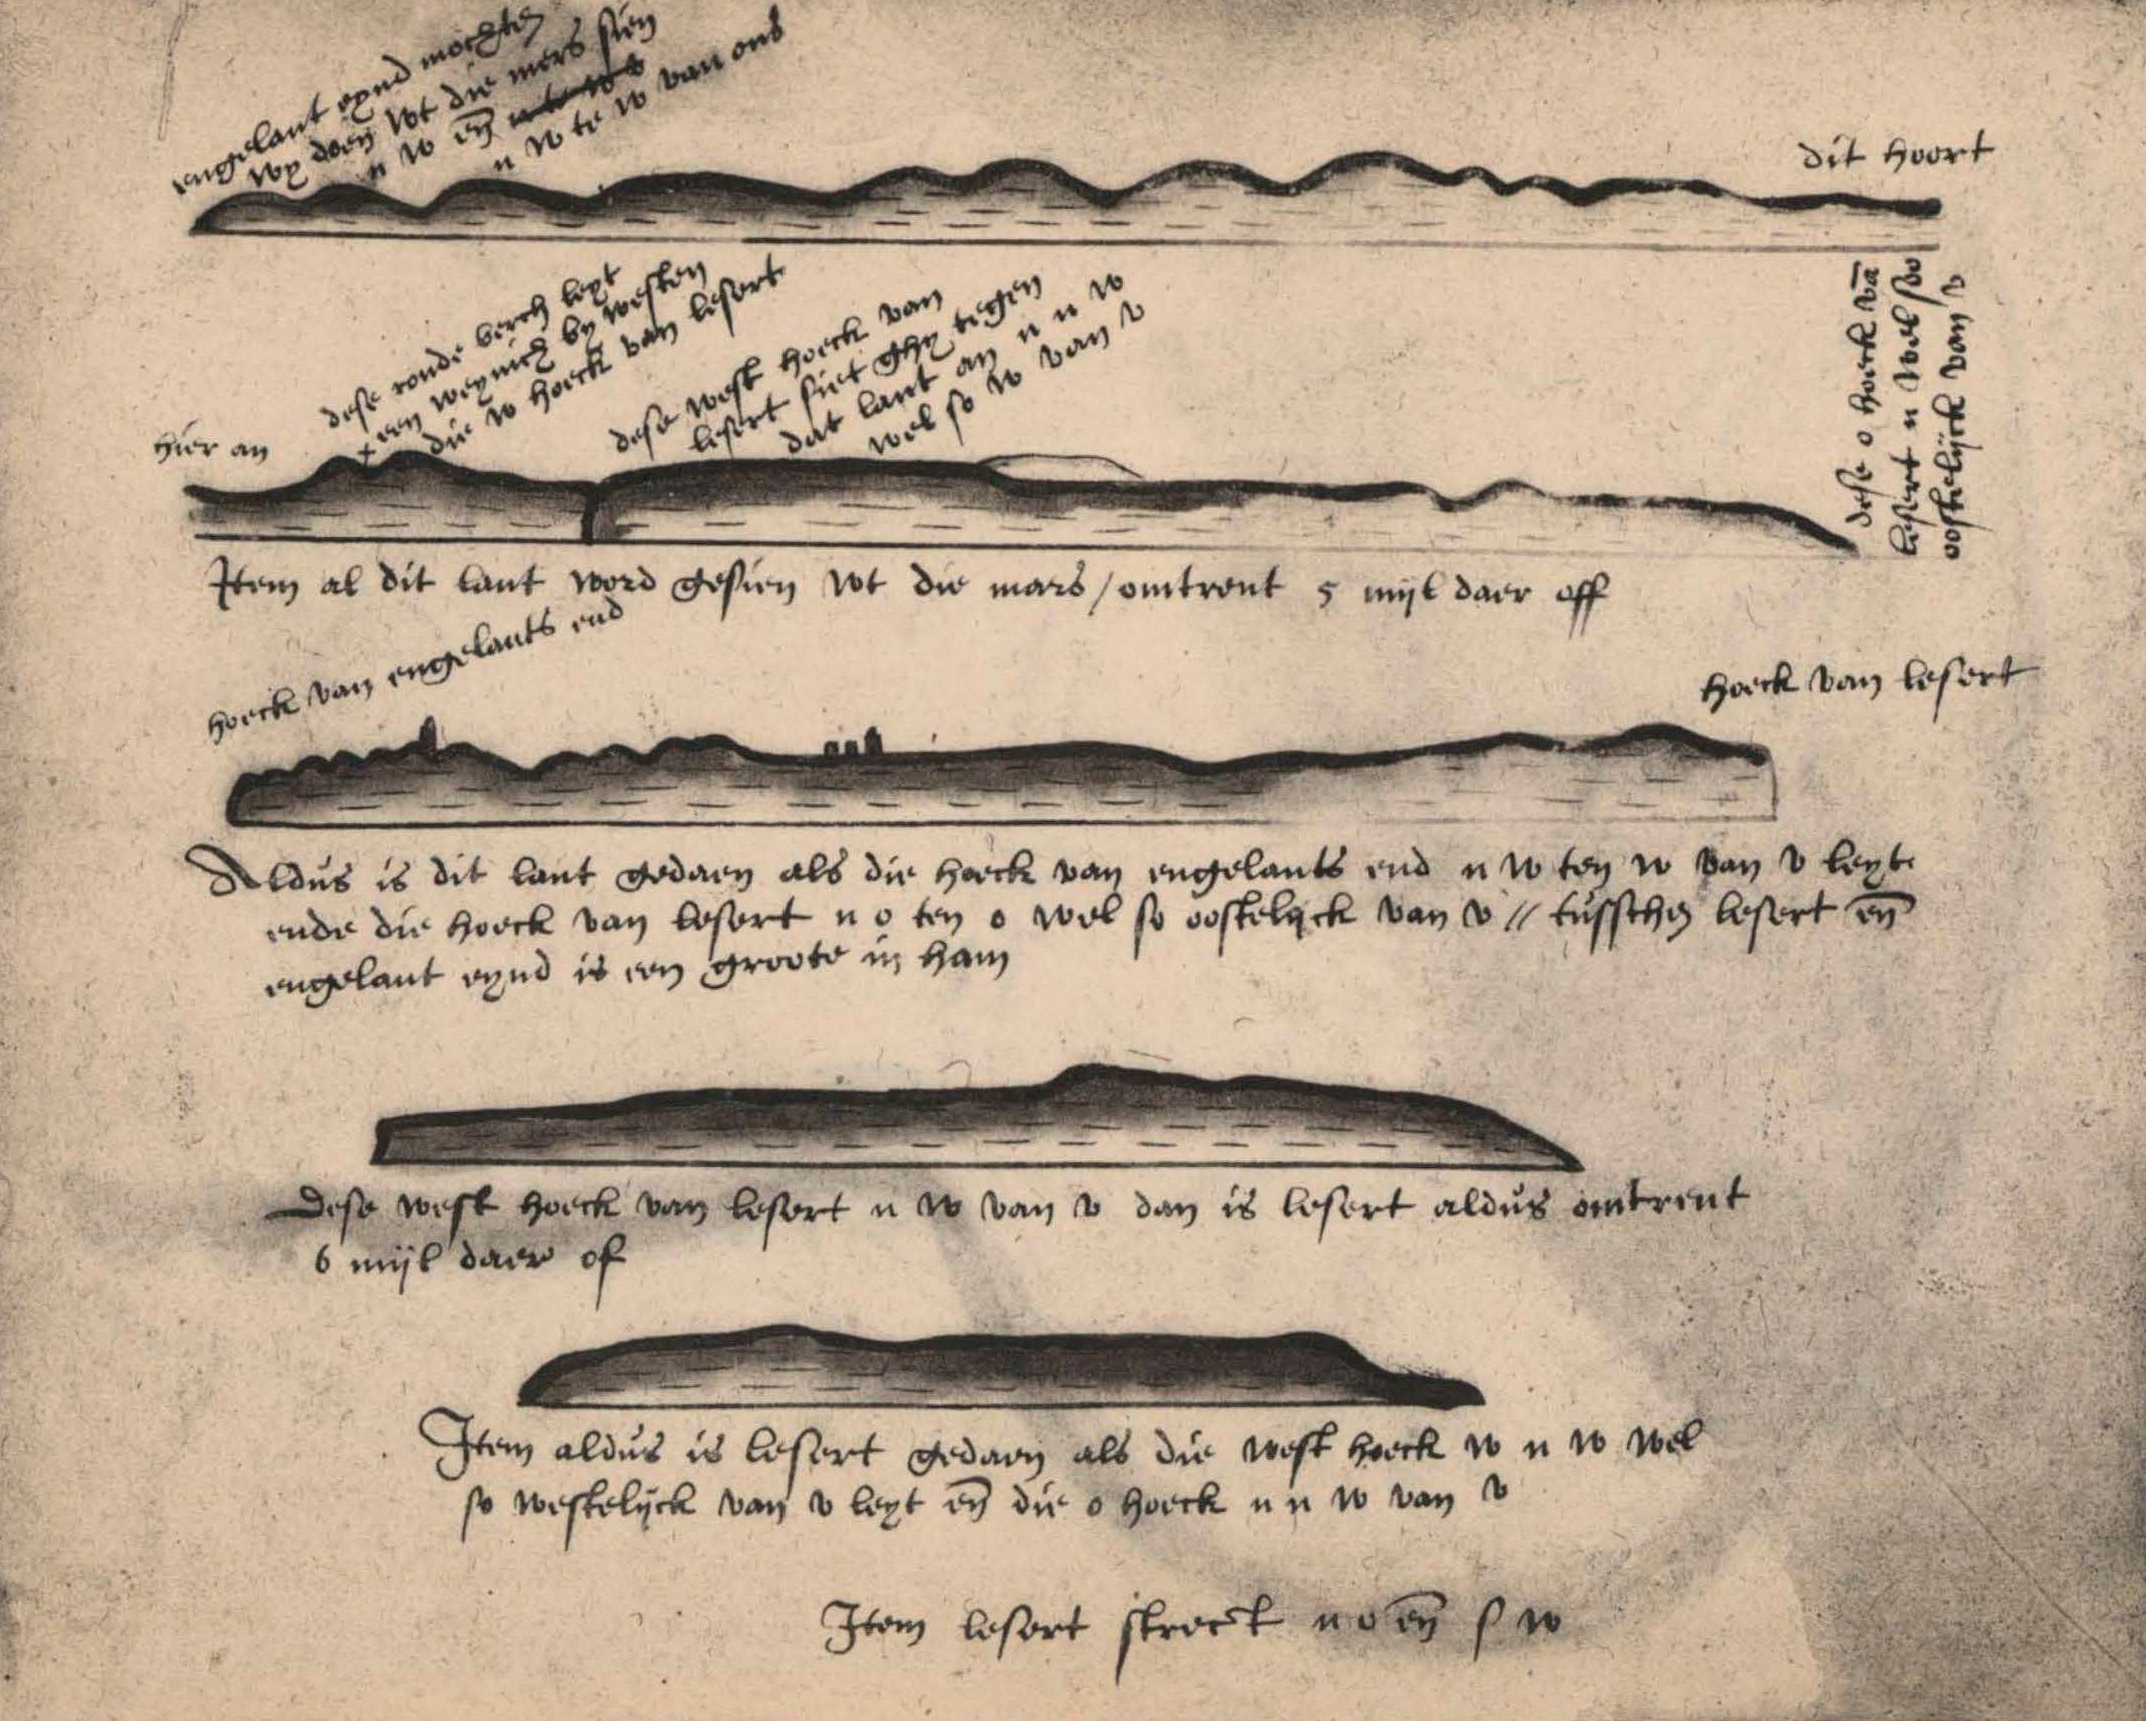 engelant eynd mochten
wy doen wt die mers sien
n w en̄ n te w
n w te w van ons
dit hoort
dese ronde berch leyt
een weynich by westen
die w hoeck van lesert
hier an
dese west hoeck van
lesert siet ghy tegen
dat lant an n n w
wel so w van v
dese o hoeck vā
lesert n wel so
oostelijck van v
Item al dit lant word gesien wt die mars / omtrent 5 mijl daer off
hoeck van engelants end
hoeck van lesert
Aldus is dit lant gedaen als die hoeck van engelants end n w ten w van v leyt
ende die hoeck van lesert n o ten o wel so oostelijck van v // tusschen lesert en̄
engelant eynd is een groote in ham
Dese west hoeck van lesert n w van v dan is lesert aldus omtrent
6 mijl daer of
Item aldus is lesert gedaen als die west hoeck w n w wel
so westelijck van v leyt en̄ die o hoeck n n w van v
Item lesert streckt n o en̄ s w